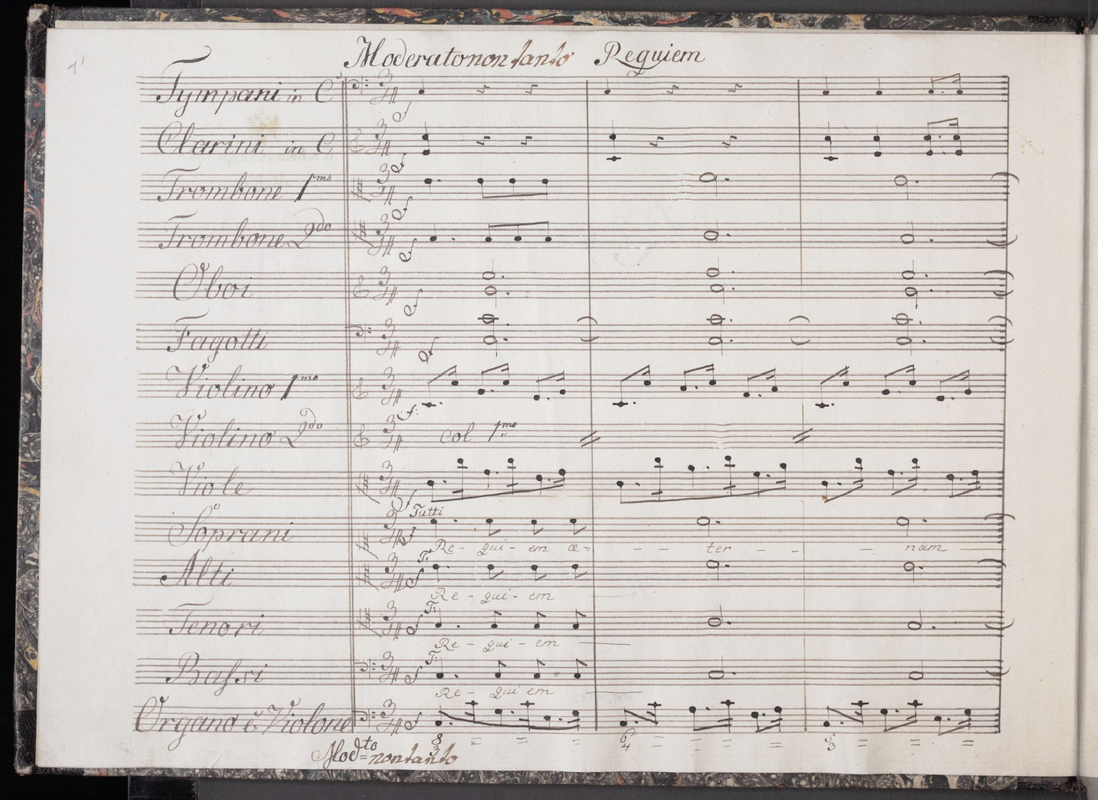 Moderato non tanto Requiem
Tympani in C
Clarini in C
Trombone 1mo
Trombone 2do
Oboi
Fagotti
Violino 1mo
Violino 2do col 1mo
Viole
Tutti
Soprani
Re - qui - em æ - - - ter - - - nam
T:
Alti
Re - qui - em
T:
Tenori
Re - qui - em
T:
Bassi
Re - qui em
Organo è Violone
Modto non tanto